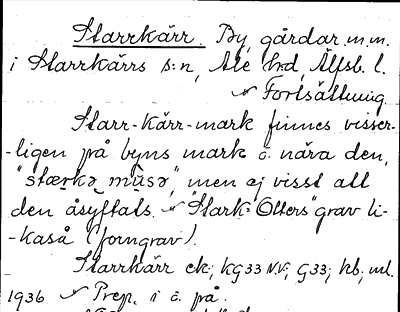 Starrkärr. By, gårdar m.m.
i Starrkärrs s:n, Ale hd, Älfsb. l.
Fortsättning.
Starr-kärr-mark finnes visser-
-ligen på byns mark o. nära den,
"stærkə mūsə", men ej visst att
den åsyftats. "Stark-Otters" grav li-
-kaså (forngrav).
Starrkärr ek, kG33 NV, G33; hb, ml.
1936 Prep. i o. på.